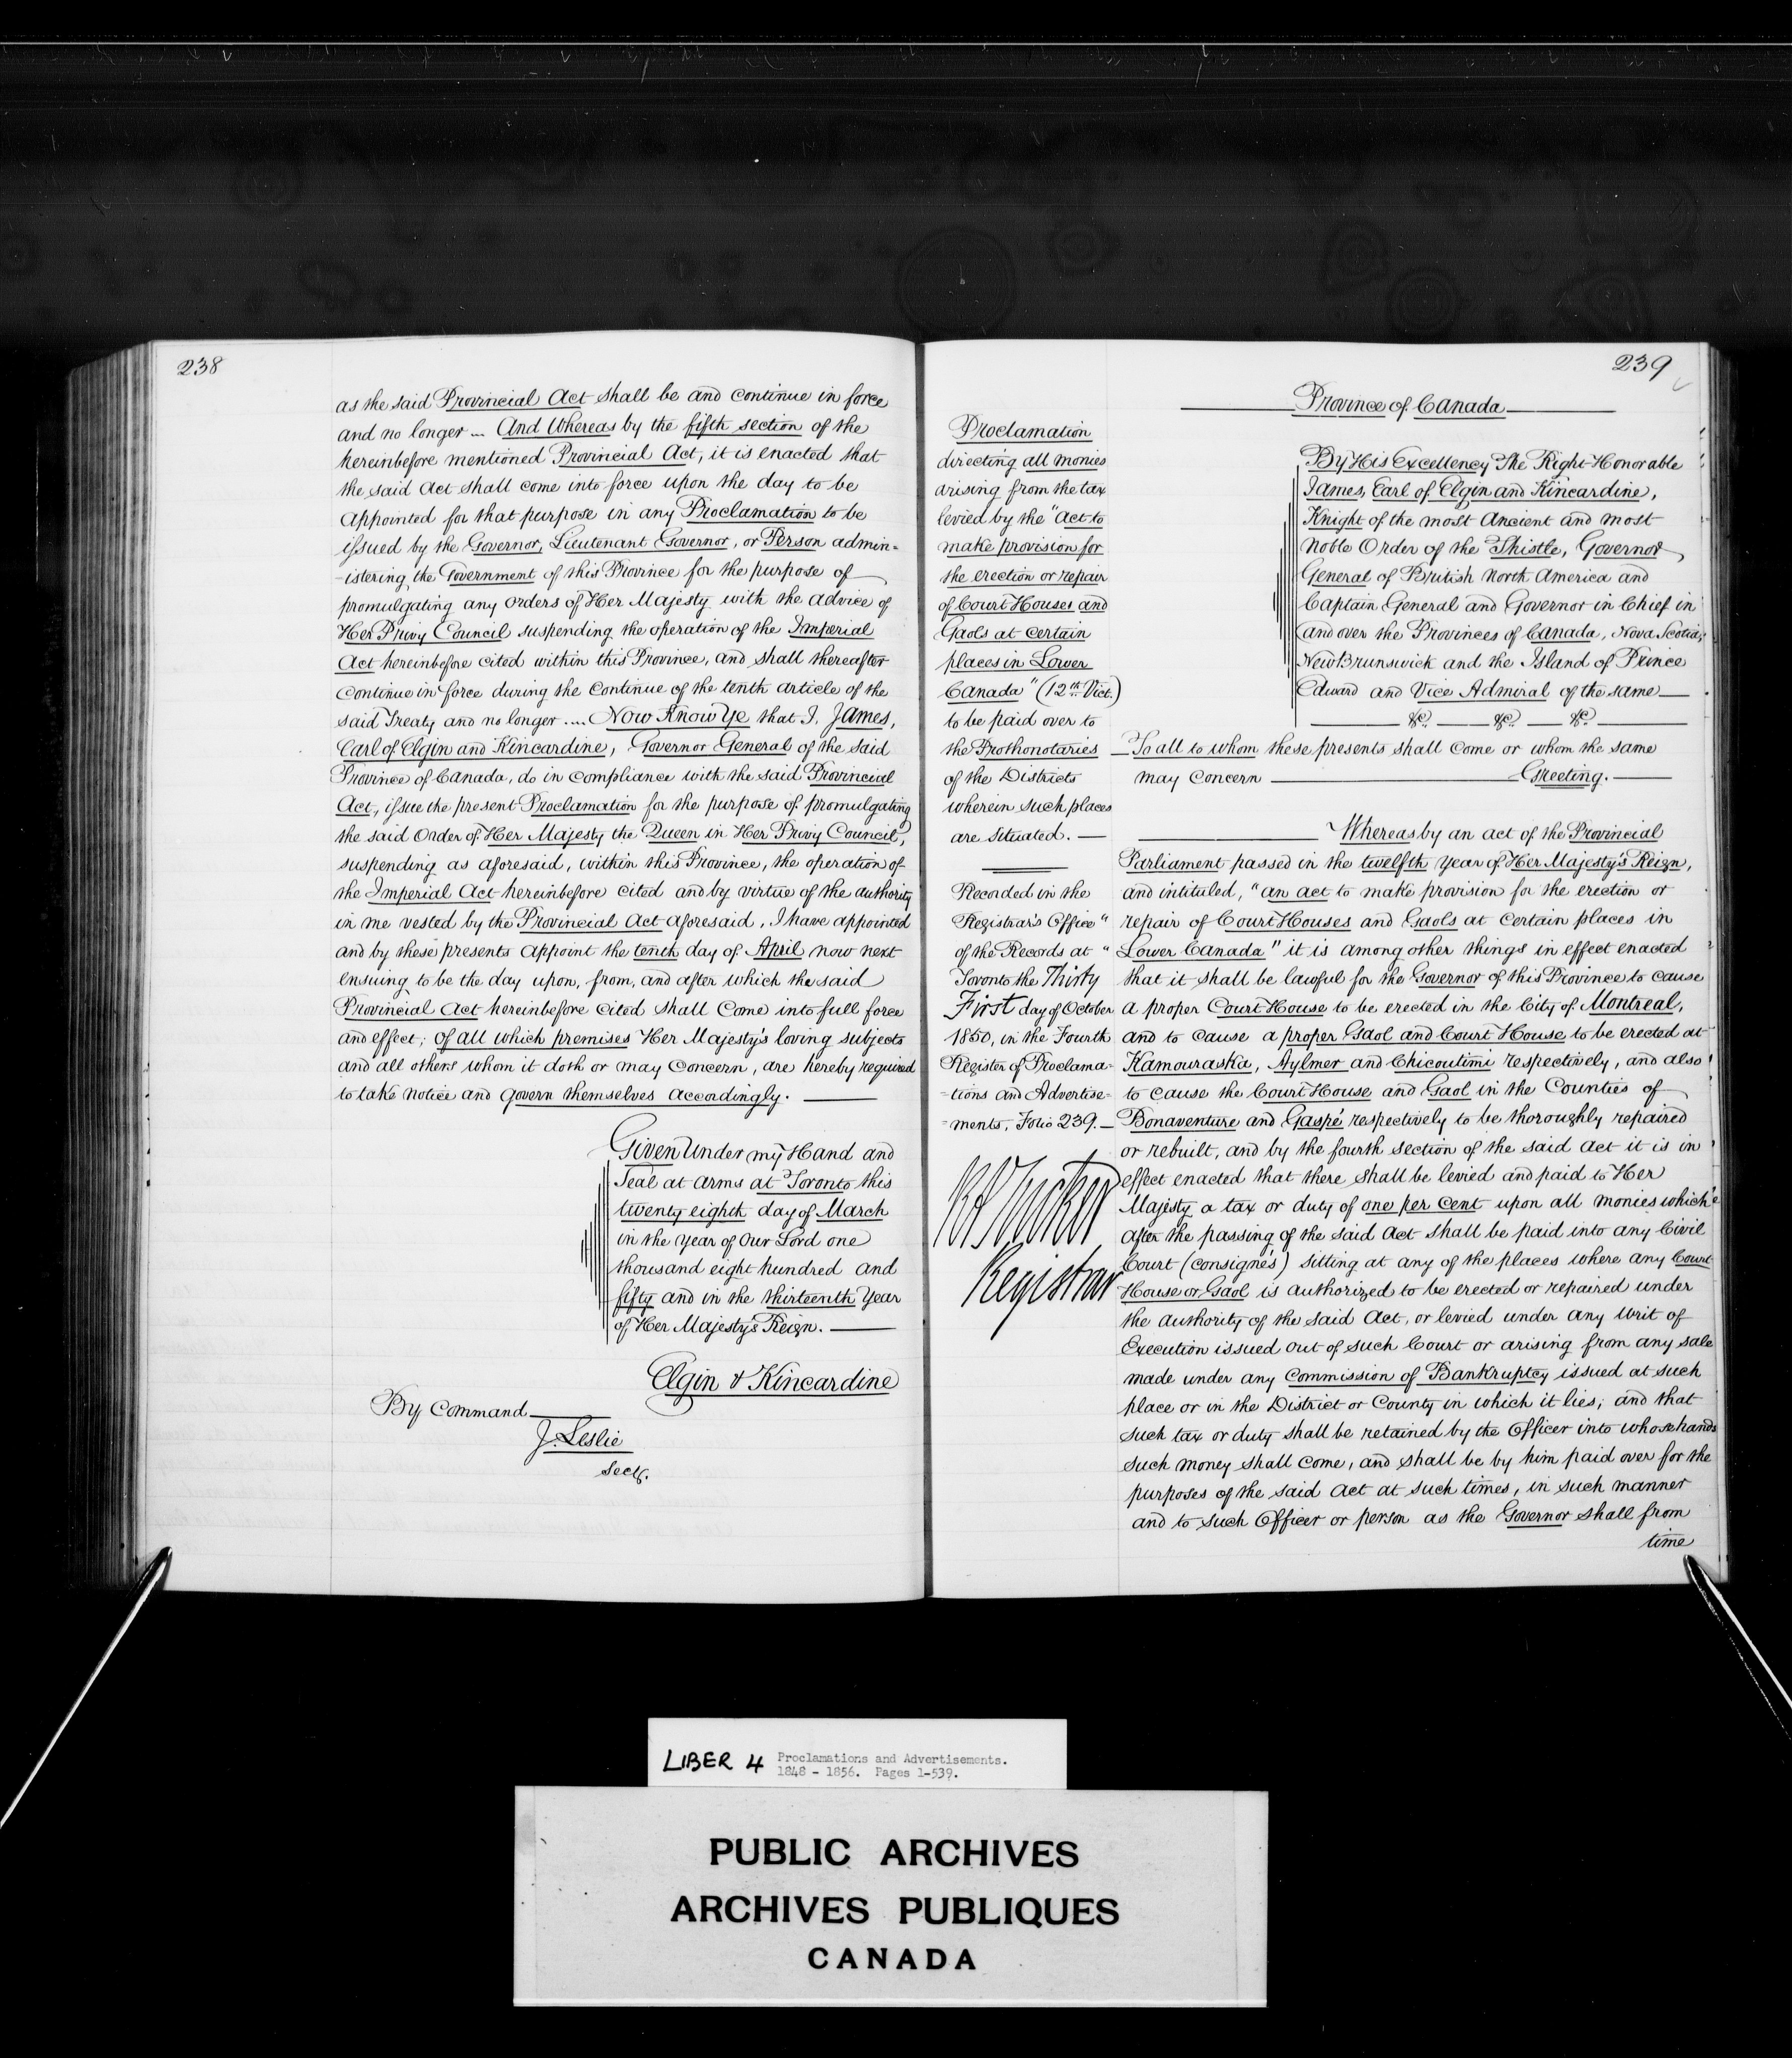 238
as the said Provincial Act shall be and continue in force
and no longer ... And Whereas by the fifth section of the
hereinbefore mentioned Provincial Act, it is enacted that
the said Act shall come into force upon the day to be
appointed for that purpose in any Proclamation to be
issued by the Governor, Lieutenant Governor, or Person admin=
-istering the Government of this Province for the purpose of
promulgating any orders of Her Majesty with the advice of
Her Privy Council suspending the operation of the Imperial
Act hereinbefore cited within this Province, and shall thereafter
continue in force during the continue of the tenth article of the
said Treaty and no longer .... Now Know Ye that I, James,
Earl of Elgin and Kincardine, Governor General of the said
Province of Canada, do in compliance with the said Provincial
Act, issue the present Proclamation for the purpose of promulgating
the said Order of Her Majesty the Queen in Her Privy Council,
suspending as aforesaid, within this Province, the operation of
the Imperial Act hereinbefore cited and by virtue of the authority
in me vested by the Provincial Act aforesaid, I have appointed
and by these presents appoint the tenth day of April now next
ensuing to be the day upon, from, and after which the said
Provincial Act hereinbefore cited shall come into full force
and effect; Of all which premises Her Majesty's loving subjects
and all others whom it doth or may concern, are hereby required
to take notice and govern themselves accordingly.
Given Under my Hand and
Seal at Arms at Toronto this
twenty eighth day of March
in the year of Our Lord one
thousand eight hundred and
fifty and in the thirteenth Year
of Her Majesty's Reign.
Elgin & Kincardine
By Command
J. Leslie
Secy.
239
Province of Canada
Proclamation
directing all monies
arising from the tax
levied by the "Act to
make provision for
the erection or repair
of Court Houses and
Gaols at certain
places in Lower
Canada" (12th Vict.)
to be paid over to
the Prothonotaries
of the Districts
wherein such places
are situated.
Recorded in the
Registrar's Office"
of the Records at "
Toronto the Thirty
First day of October
1850, in the Fourth
Register of Proclama=
=tions and Advertise=
=ments, Folio 239.
R A Tucker
Registrar
By His Excellency The Right Honorable
James, Earl of Elgin and Kincardine,
Knight of the most Ancient and most
Noble Order of the Thistle, Governor
General of British North America and
Captain General and Governor in Chief in
and over the Provinces of Canada, Nova Scotia,
New Brunswick and the Island of Prince
Edward and Vice Admiral of the same
&c. &c. &c.
To all to whom these presents shall come or whom the same
may concern Greeting.
Whereas by an act of the Provincial
Parliament passed in the twelfth year of Her Majesty's Reign,
and intituled, "An act to make provision for the erection or
repair of Court Houses and Gaols at certain places in
Lower Canada" it is among other things in effect enacted
that it shall be lawful for the Governor of this Province to cause
a proper Court House to be erected in the City of Montreal,
and to cause a proper Gaol and Court House to be erected at
Kamouraska, Aylmer and Chicoutimi respectively, and also
to cause the Court House and Gaol in the Counties of
Bonaventure and Gaspé respectively to be thoroughly repaired
or rebuilt, and by the fourth section of the said Act it is in
effect enacted that there shall be levied and paid to Her
Majesty a tax or duty of one per cent upon all monies which
after the passing of the said Act shall be paid into any Civil
Court (consignés) sitting at any of the places where any Court
House or Gaol is authorized to be erected or repaired under
the authority of the said Act, or levied under any writ of
Execution issued out of such Court or arising from any sale
made under any Commission of Bankruptcy issued at such
place or in the District or County in which it lies; and that
such tax or duty shall be retained by the Officer into whose hands
such money shall come, and shall be by him paid over for the
purposes of the said Act at such times, in such manner
and to such Officer or person as the Governor shall from
time
LIBER 4 Proclamations and Advertisements.
1848 - 1856. Pages 1-539.
PUBLIC ARCHIVES
ARCHIVES PUBLIQUES
CANADA